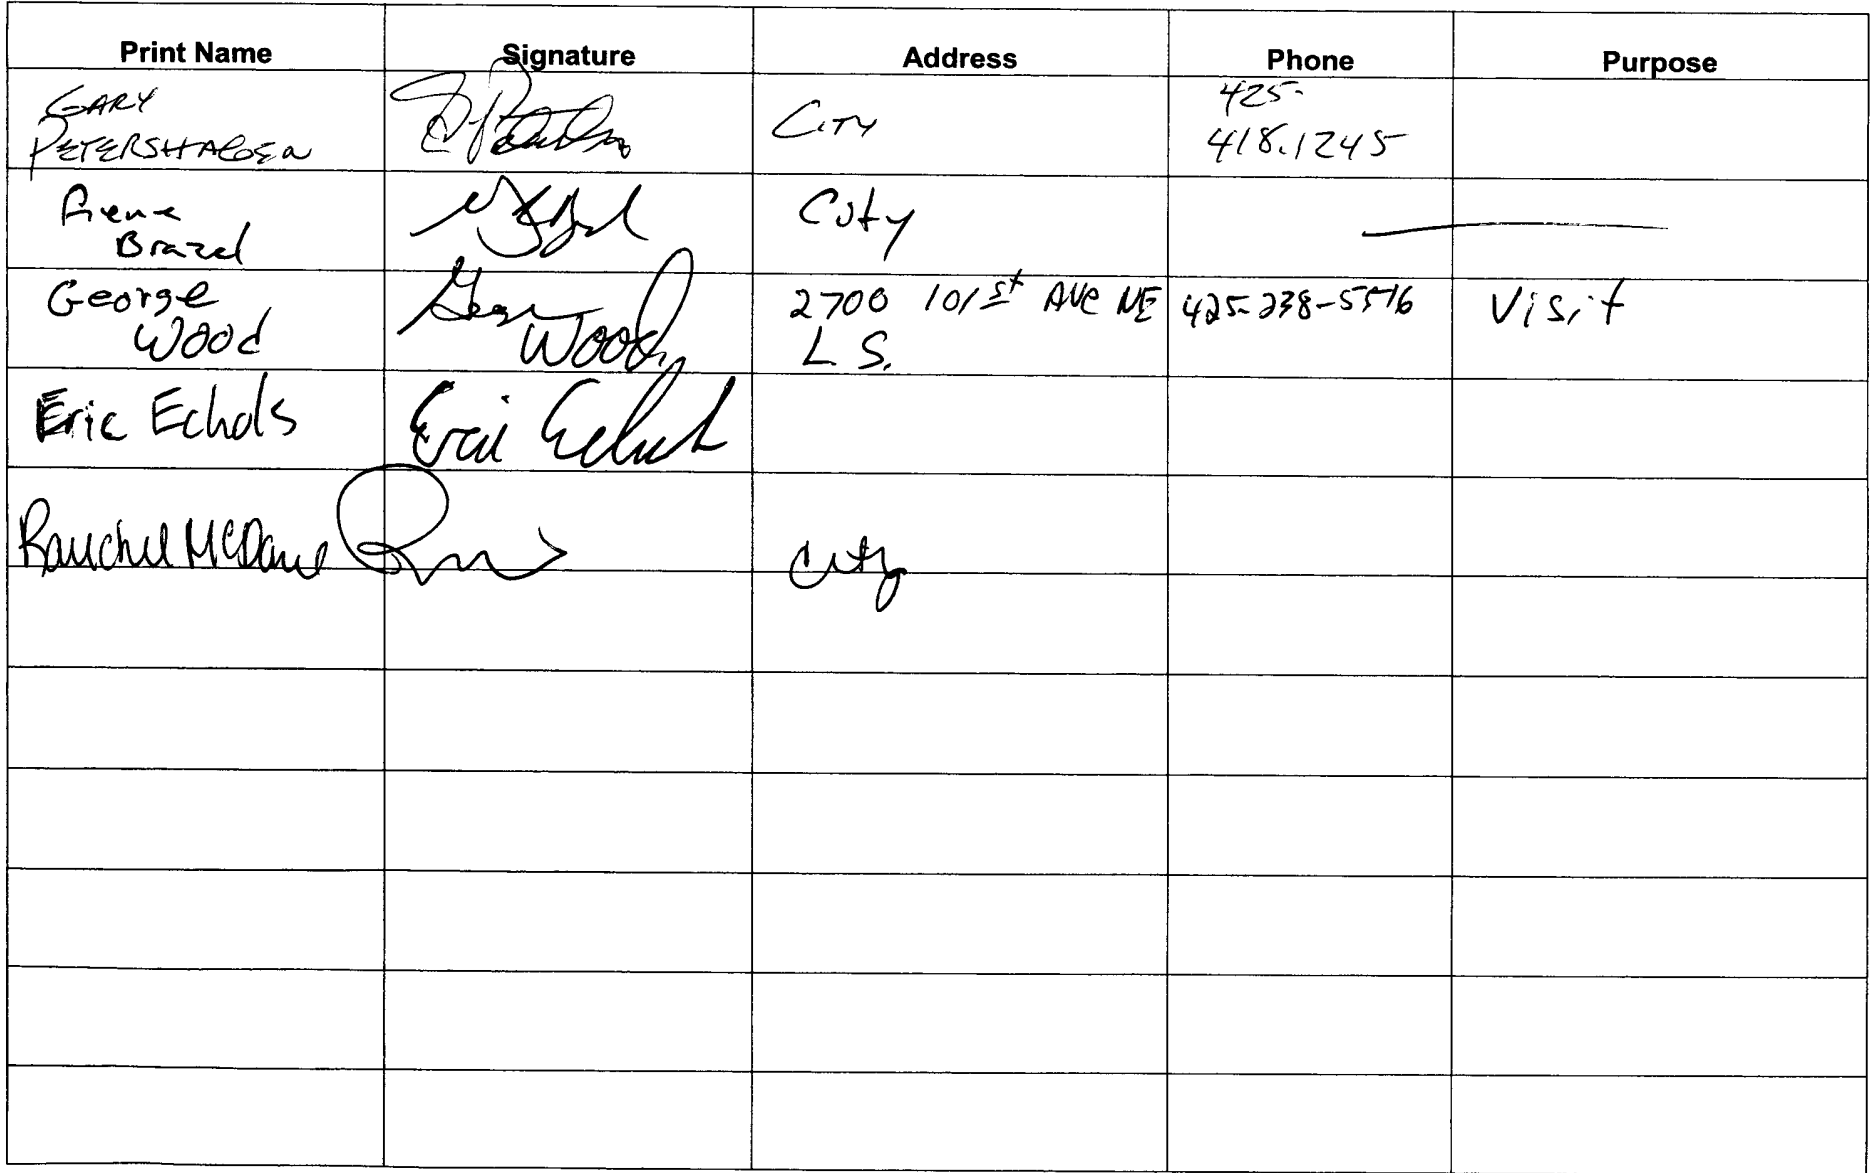 Print Name Signature Address Phone Purpose
GARY
PETERSHAGEN
CITY
425-
418.1245
Brazel
City
George
Wood
George
Wood
2700 101st Ave NE
L S.
425-238-5576
Visit
Eric Echols
Eric Echols
City